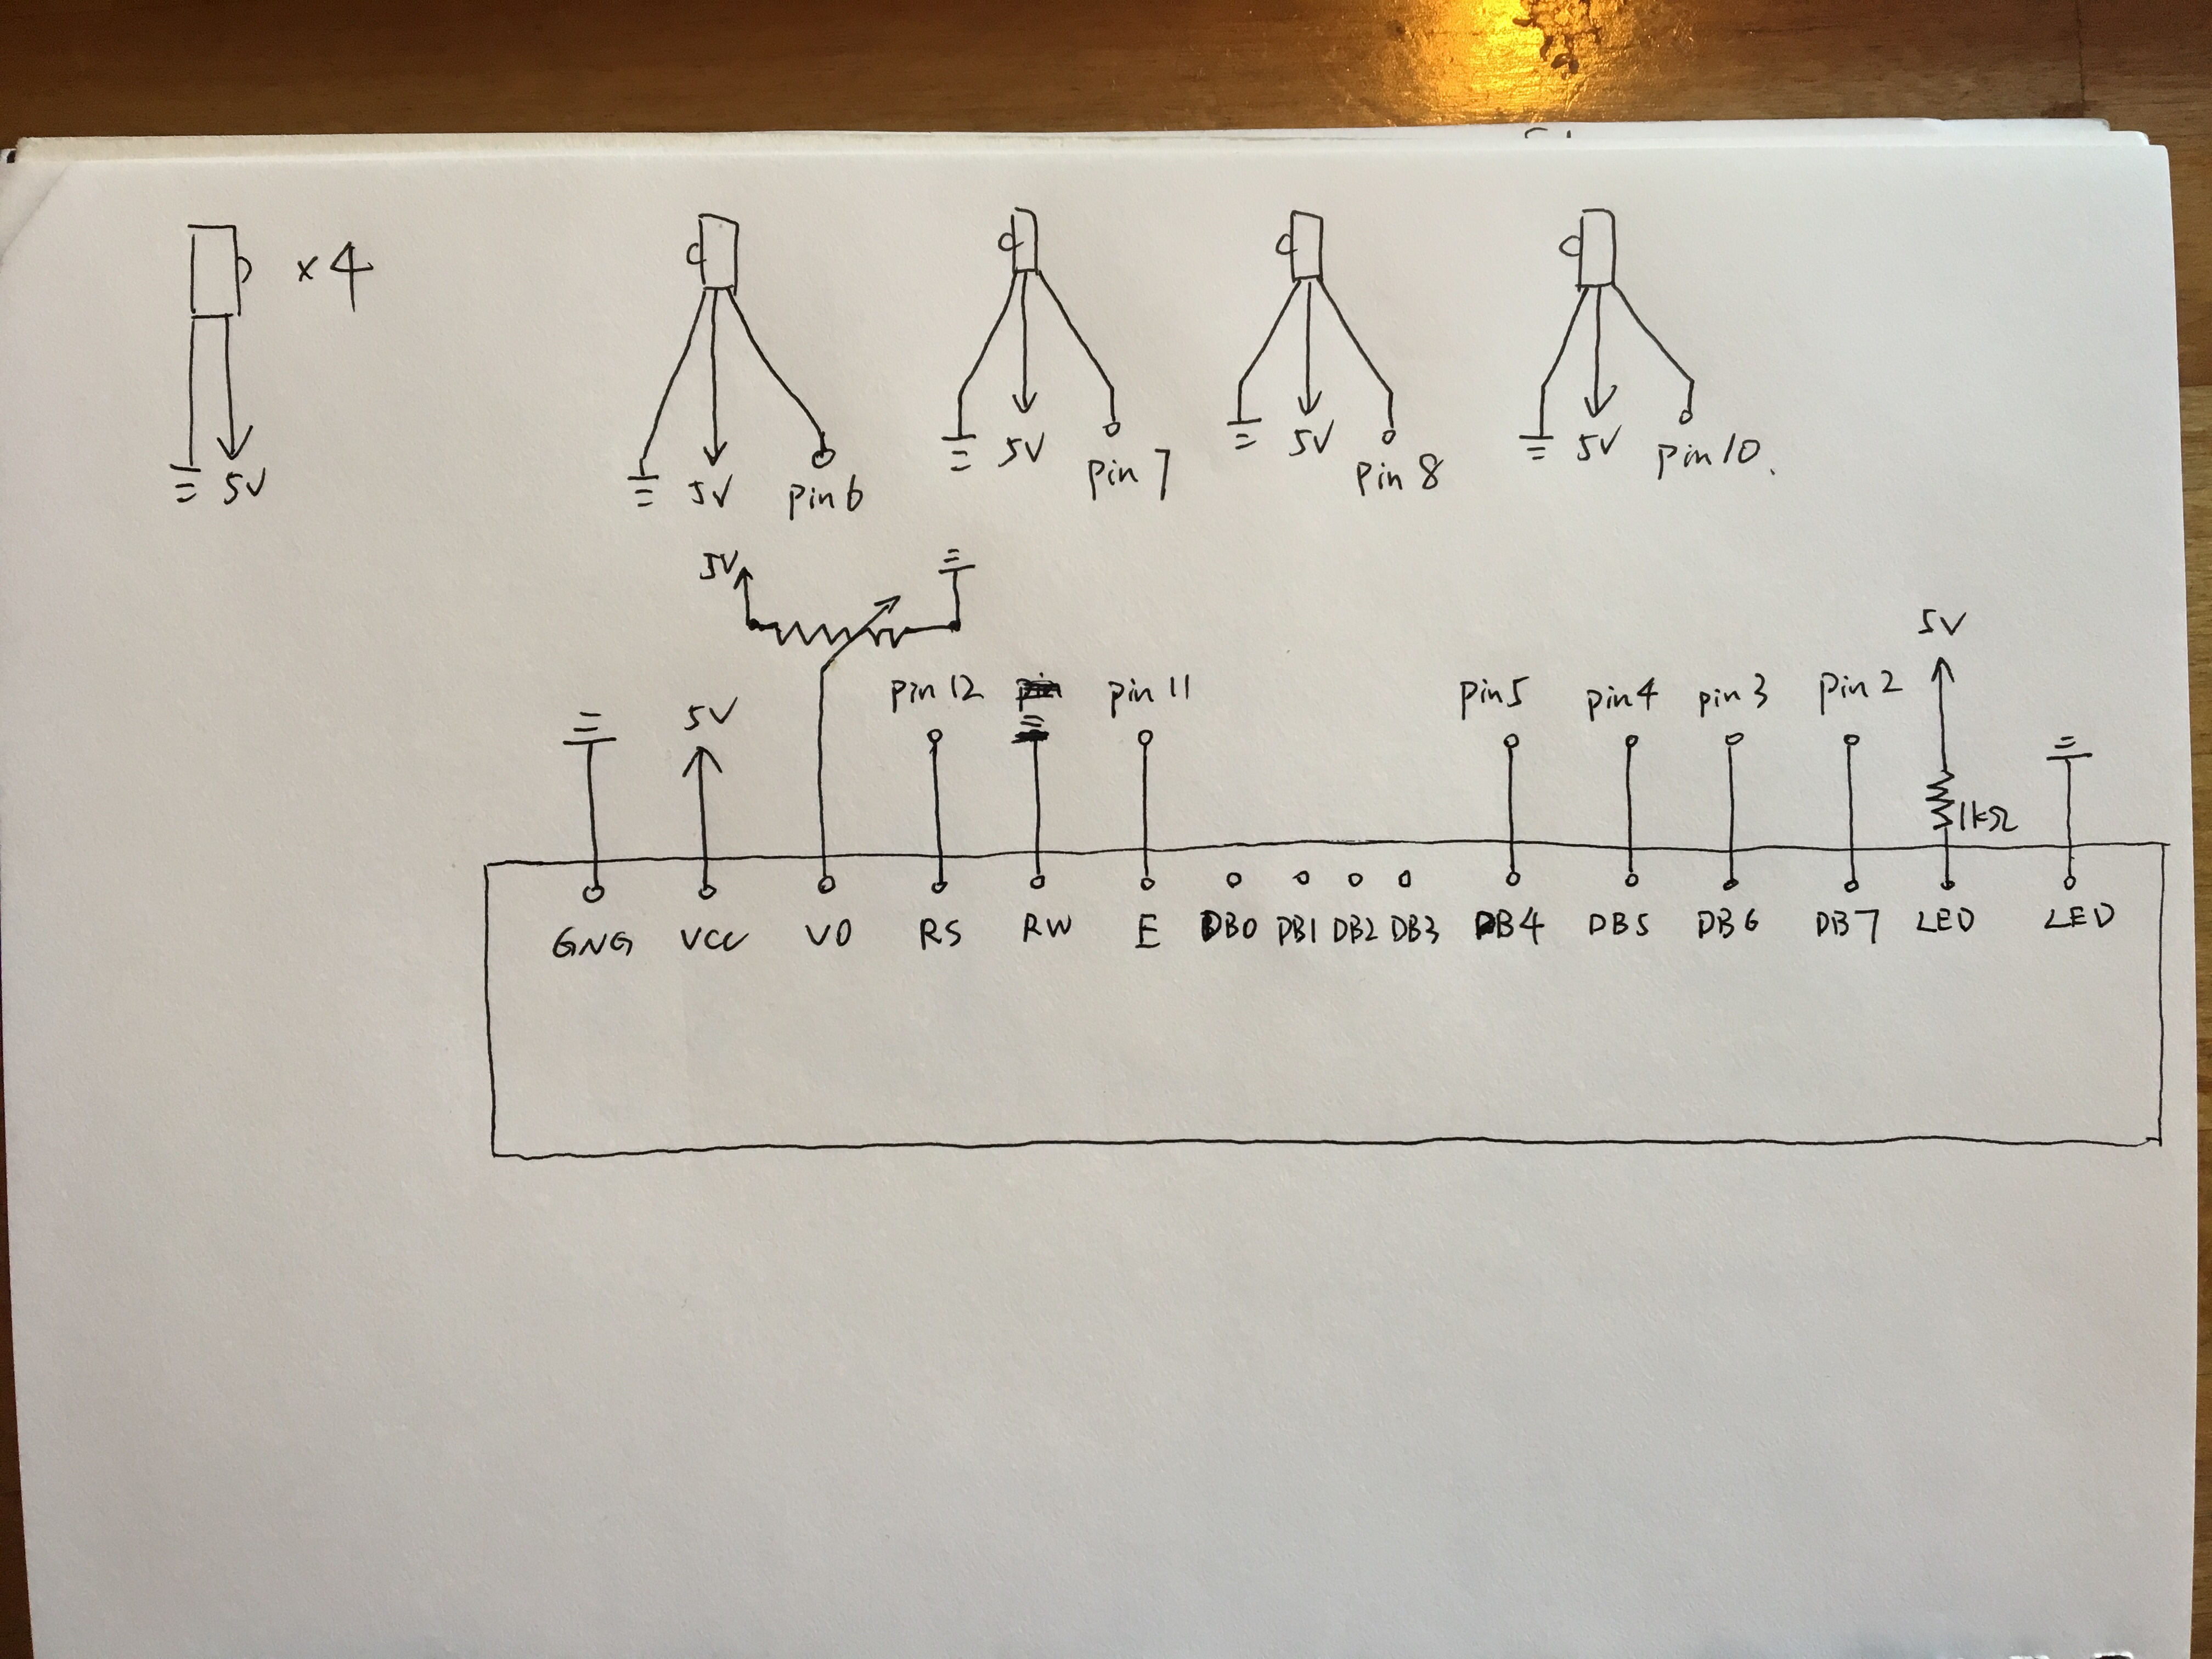 x4
5V
5V pin6
5V pin 7
5V pin 8
5V pin 10.
5V
5V
5V
pin 12 pin 11 pin5 pin4 pin 3 pin 2
1kΩ
GNG VCC VO RS RW E DB0 DB1 DB2 DB3 DB4 DB5 DB6 DB7 LED LED